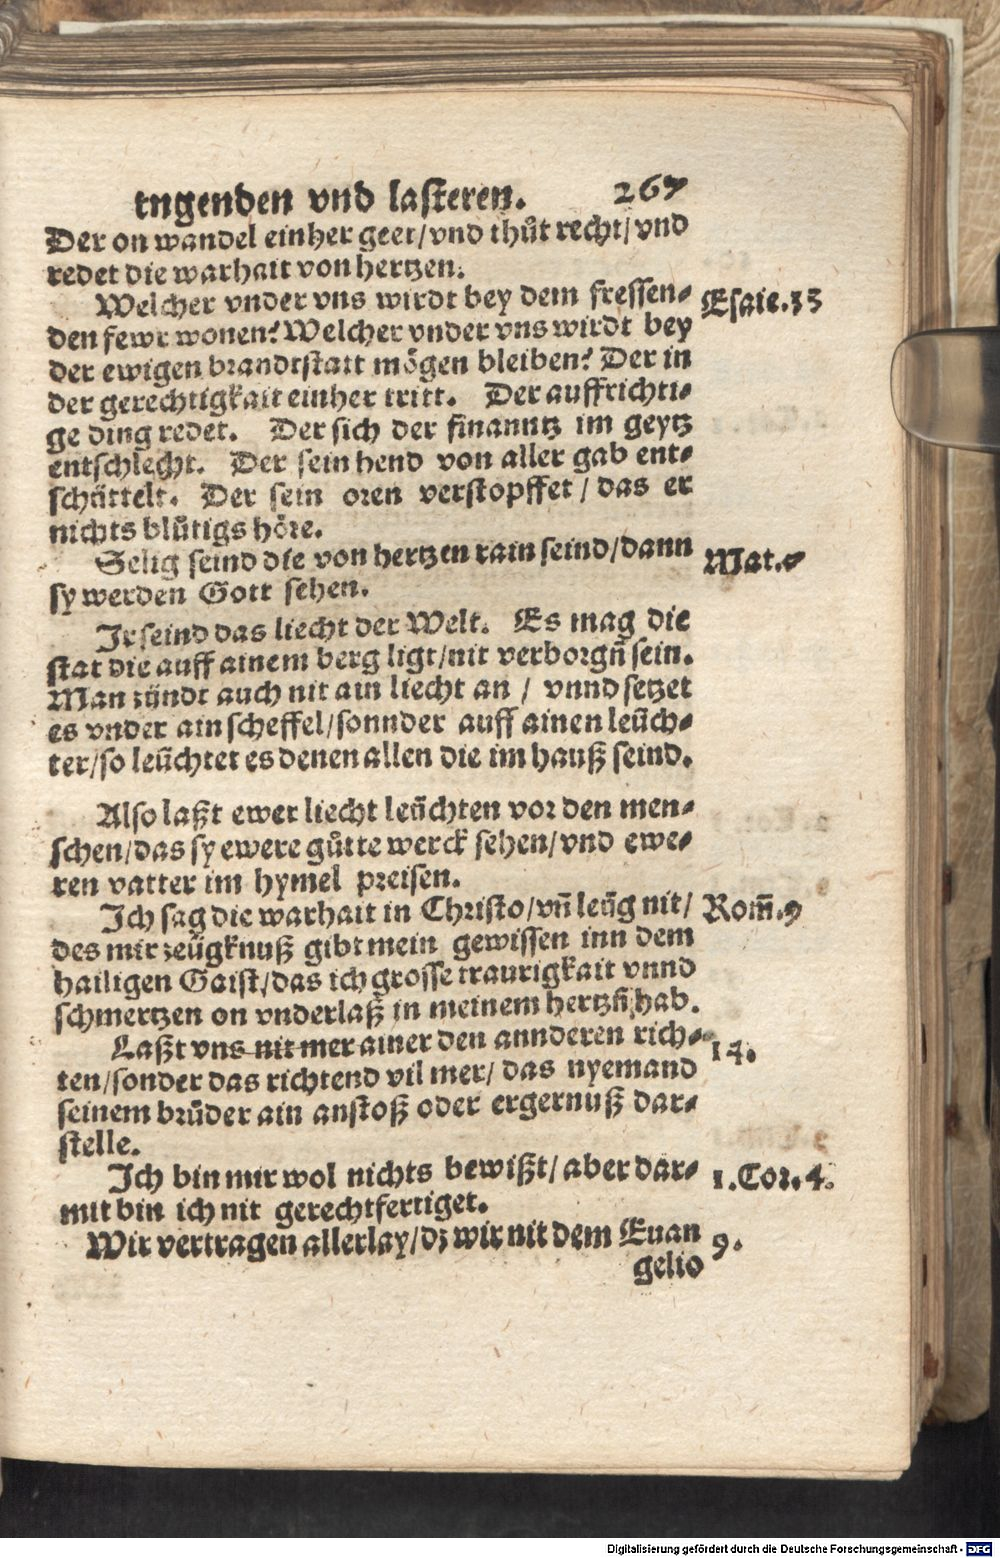 tngenden vnd lasteren. 267
Der on wandel einher geet/vnd thůt recht/vnd
redet die warhait von hertzen.
Welcher vnder vns wirdt bey dem fressen-
den fewr wonen? Welcher vnder vns wirdt bey
der ewigen brandtstatt mögen bleiben? Der in
der gerechtigkait einher tritt. Der auffrichti-
ge ding redet. Der sich der finanntz im geytz
entschlecht. Der sein hend von aller gab ent-
schüttelt. Der sein oren verstopffet/das er
nichts blůtigs höre.
Esaie.33
Selig seind die von hertzen rain seind/dann
sy werden Gott sehen.
Mat.
Ir seind das liecht der Welt. Es mag die
stat die auff ainem berg ligt/nit verborgñ sein.
Man zündt auch nit ain liecht an / vnnd setzet
es vnder ain scheffel/sonnder auff ainen leüch-
ter/so leüchtet es denen allen die im hauß seind.
Also laßt ewer liecht leüchten vor den men-
schen/das sy ewere gůtte werck sehen/vnd ewe-
ren vatter im hymel preisen.
Ich sag die warhait in Christo/vñ leüg nit/
des mir zeügknuß gibt mein gewissen inn dem
hailigen Gaist/das ich grosse traurigkait vnnd
schmertzen on vnderlaß in meinem hertzñ hab.
Rom̃.9
Laßt vns nit mer ainer den annderen rich-
ten/sonder das richtend vil mer/ das nyemand
seinem brůder ain anstoß oder ergernuß dar-
stelle.
14.
Ich bin mir wol nichts bewißt/aber dar-
mit bin ich nit gerechtfertiget.
1.Cor.4.
Wir vertragen allerlay/dz wir nit dem Euan
gelio
9.
Digitalisierung gefördert durch die Deutsche Forschungsgemeinschaft - DFG